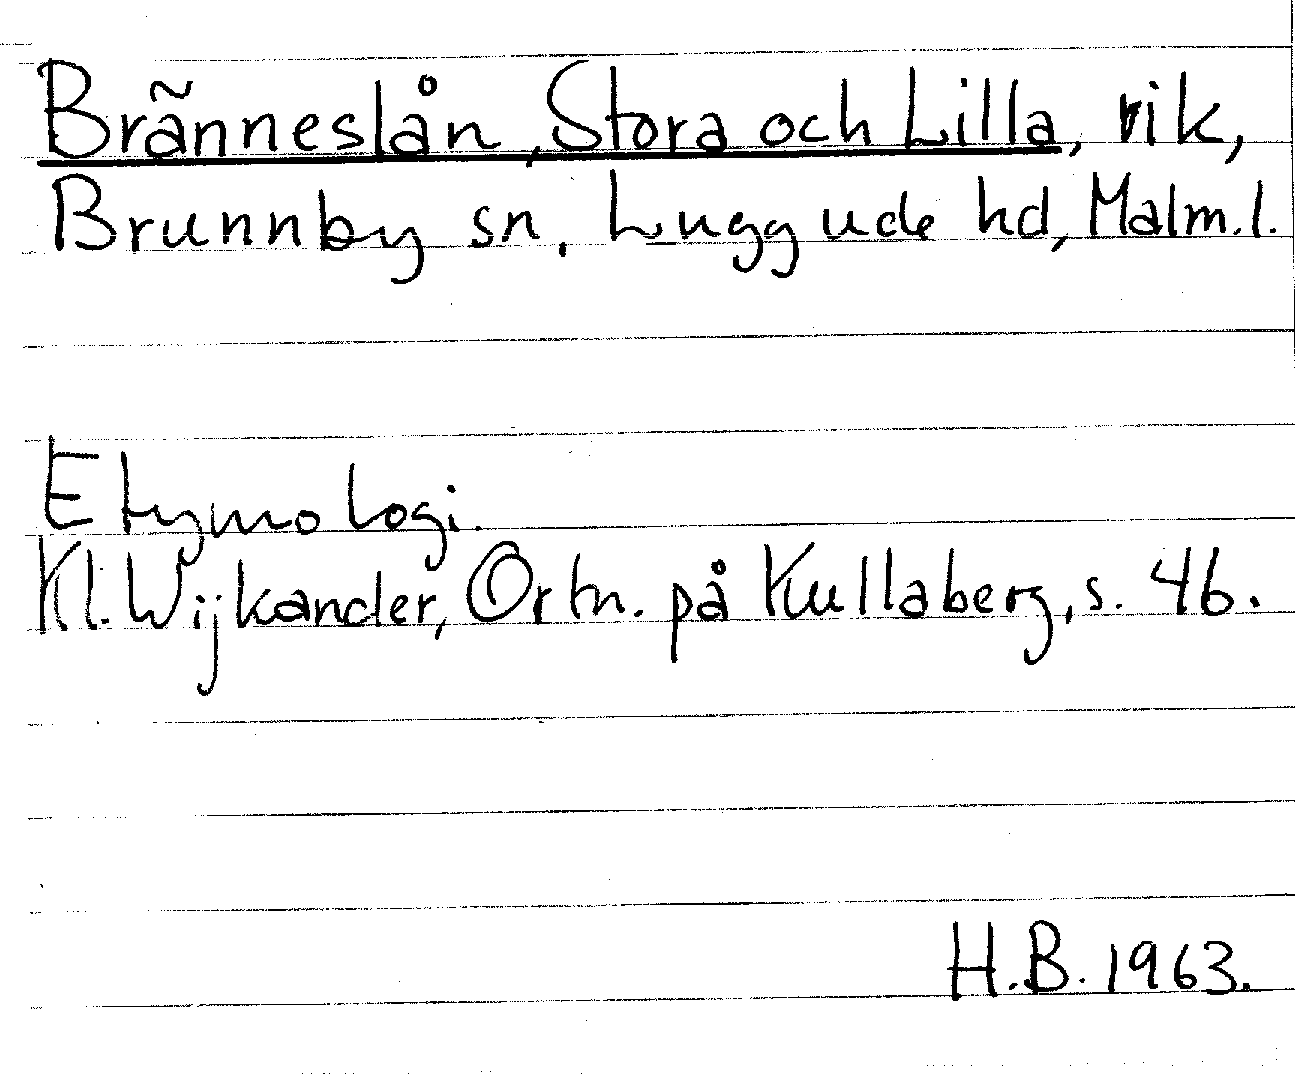 Bränneslån, Stora och Lilla, vik,
Brunnby sn, Luggude hd, Malm.l.
Etymologi.
Kl. Wijkander, Ortn. på Kullaberg, s. 46.
H.B. 1963.